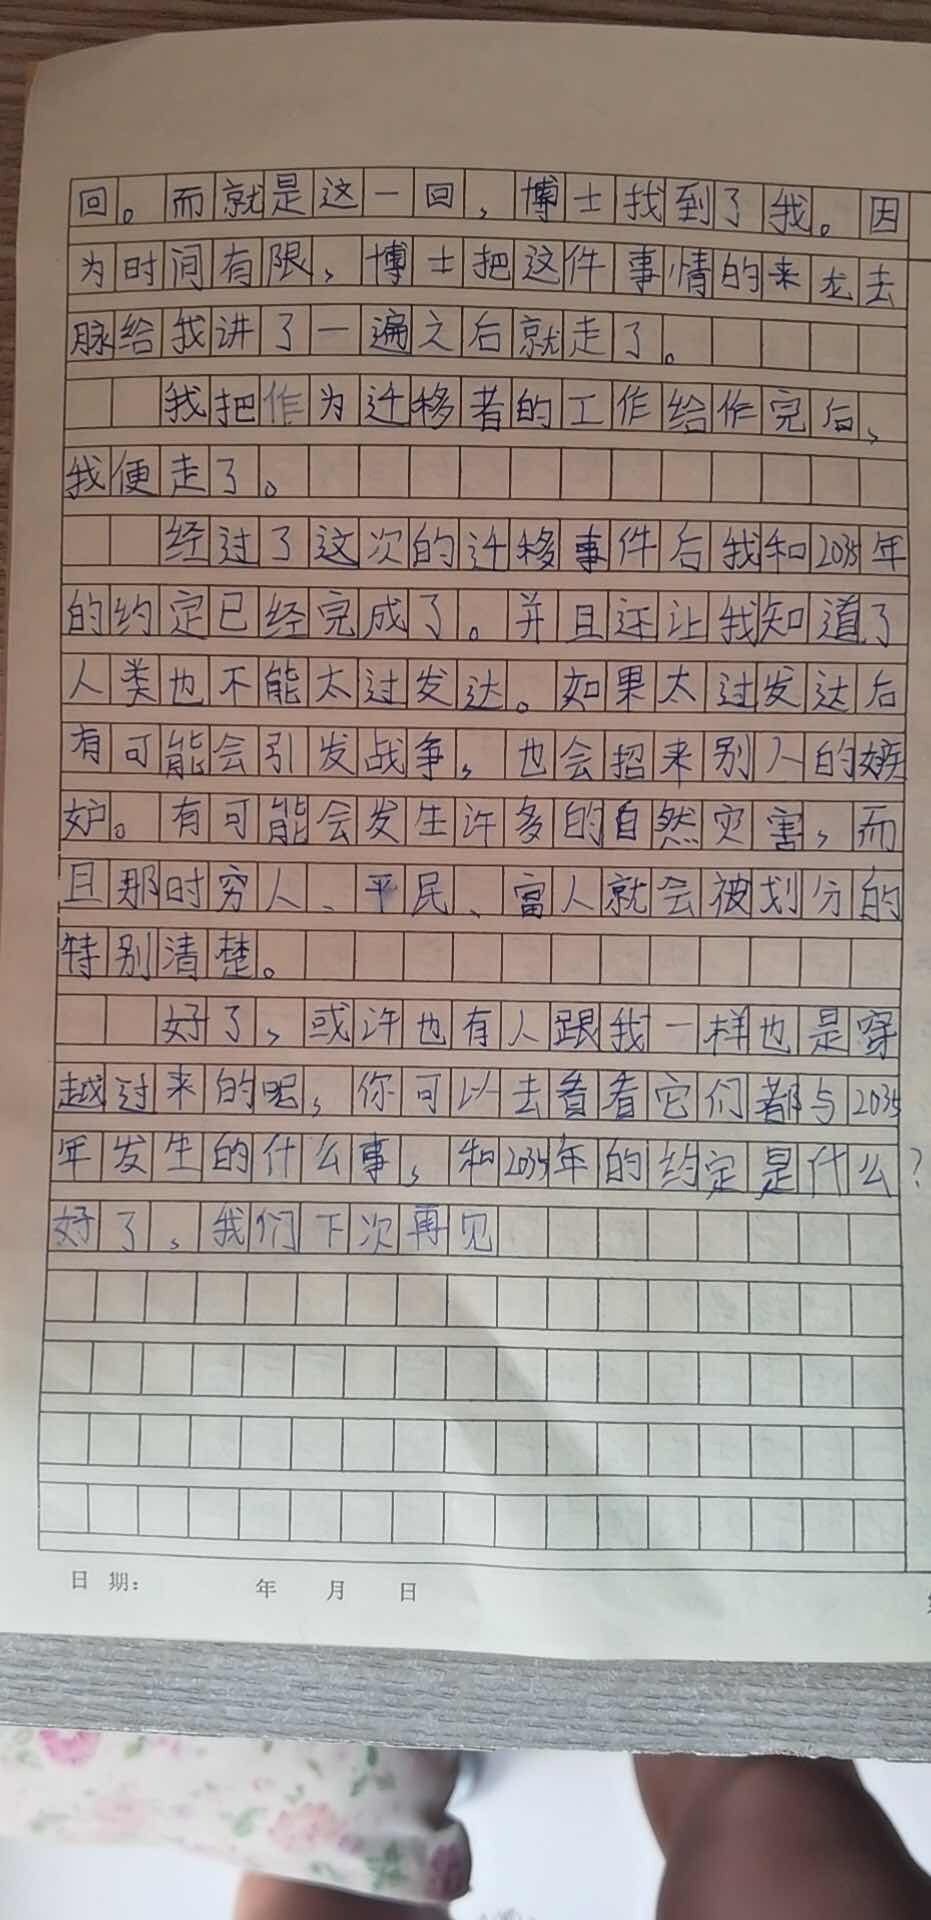 回。而就是这一回，博士找到了我。因
为时间有限，博士把这件事情的来龙去
脉给我讲了一遍之后就走了。
我把作为迁移者的工作给作完后，
我便走了。
经过了这次的迁移事件后我和2035年
的约定已经完成了。并且还让我知道了
人类也不能太过发达。如果太过发达后
有可能会引发战争，也会招来别人的嫉
妒。有可能会发生许多的自然灾害，而
且那时穷人、平民、富人就会被划分的
特别清楚。
好了，或许也有人跟我一样也是穿
越过来的呢，你可以去看看它们都与2035
年发生的什么事，和2035年的约定是什么？
好了，我们下次再见
日 期： 年 月 日